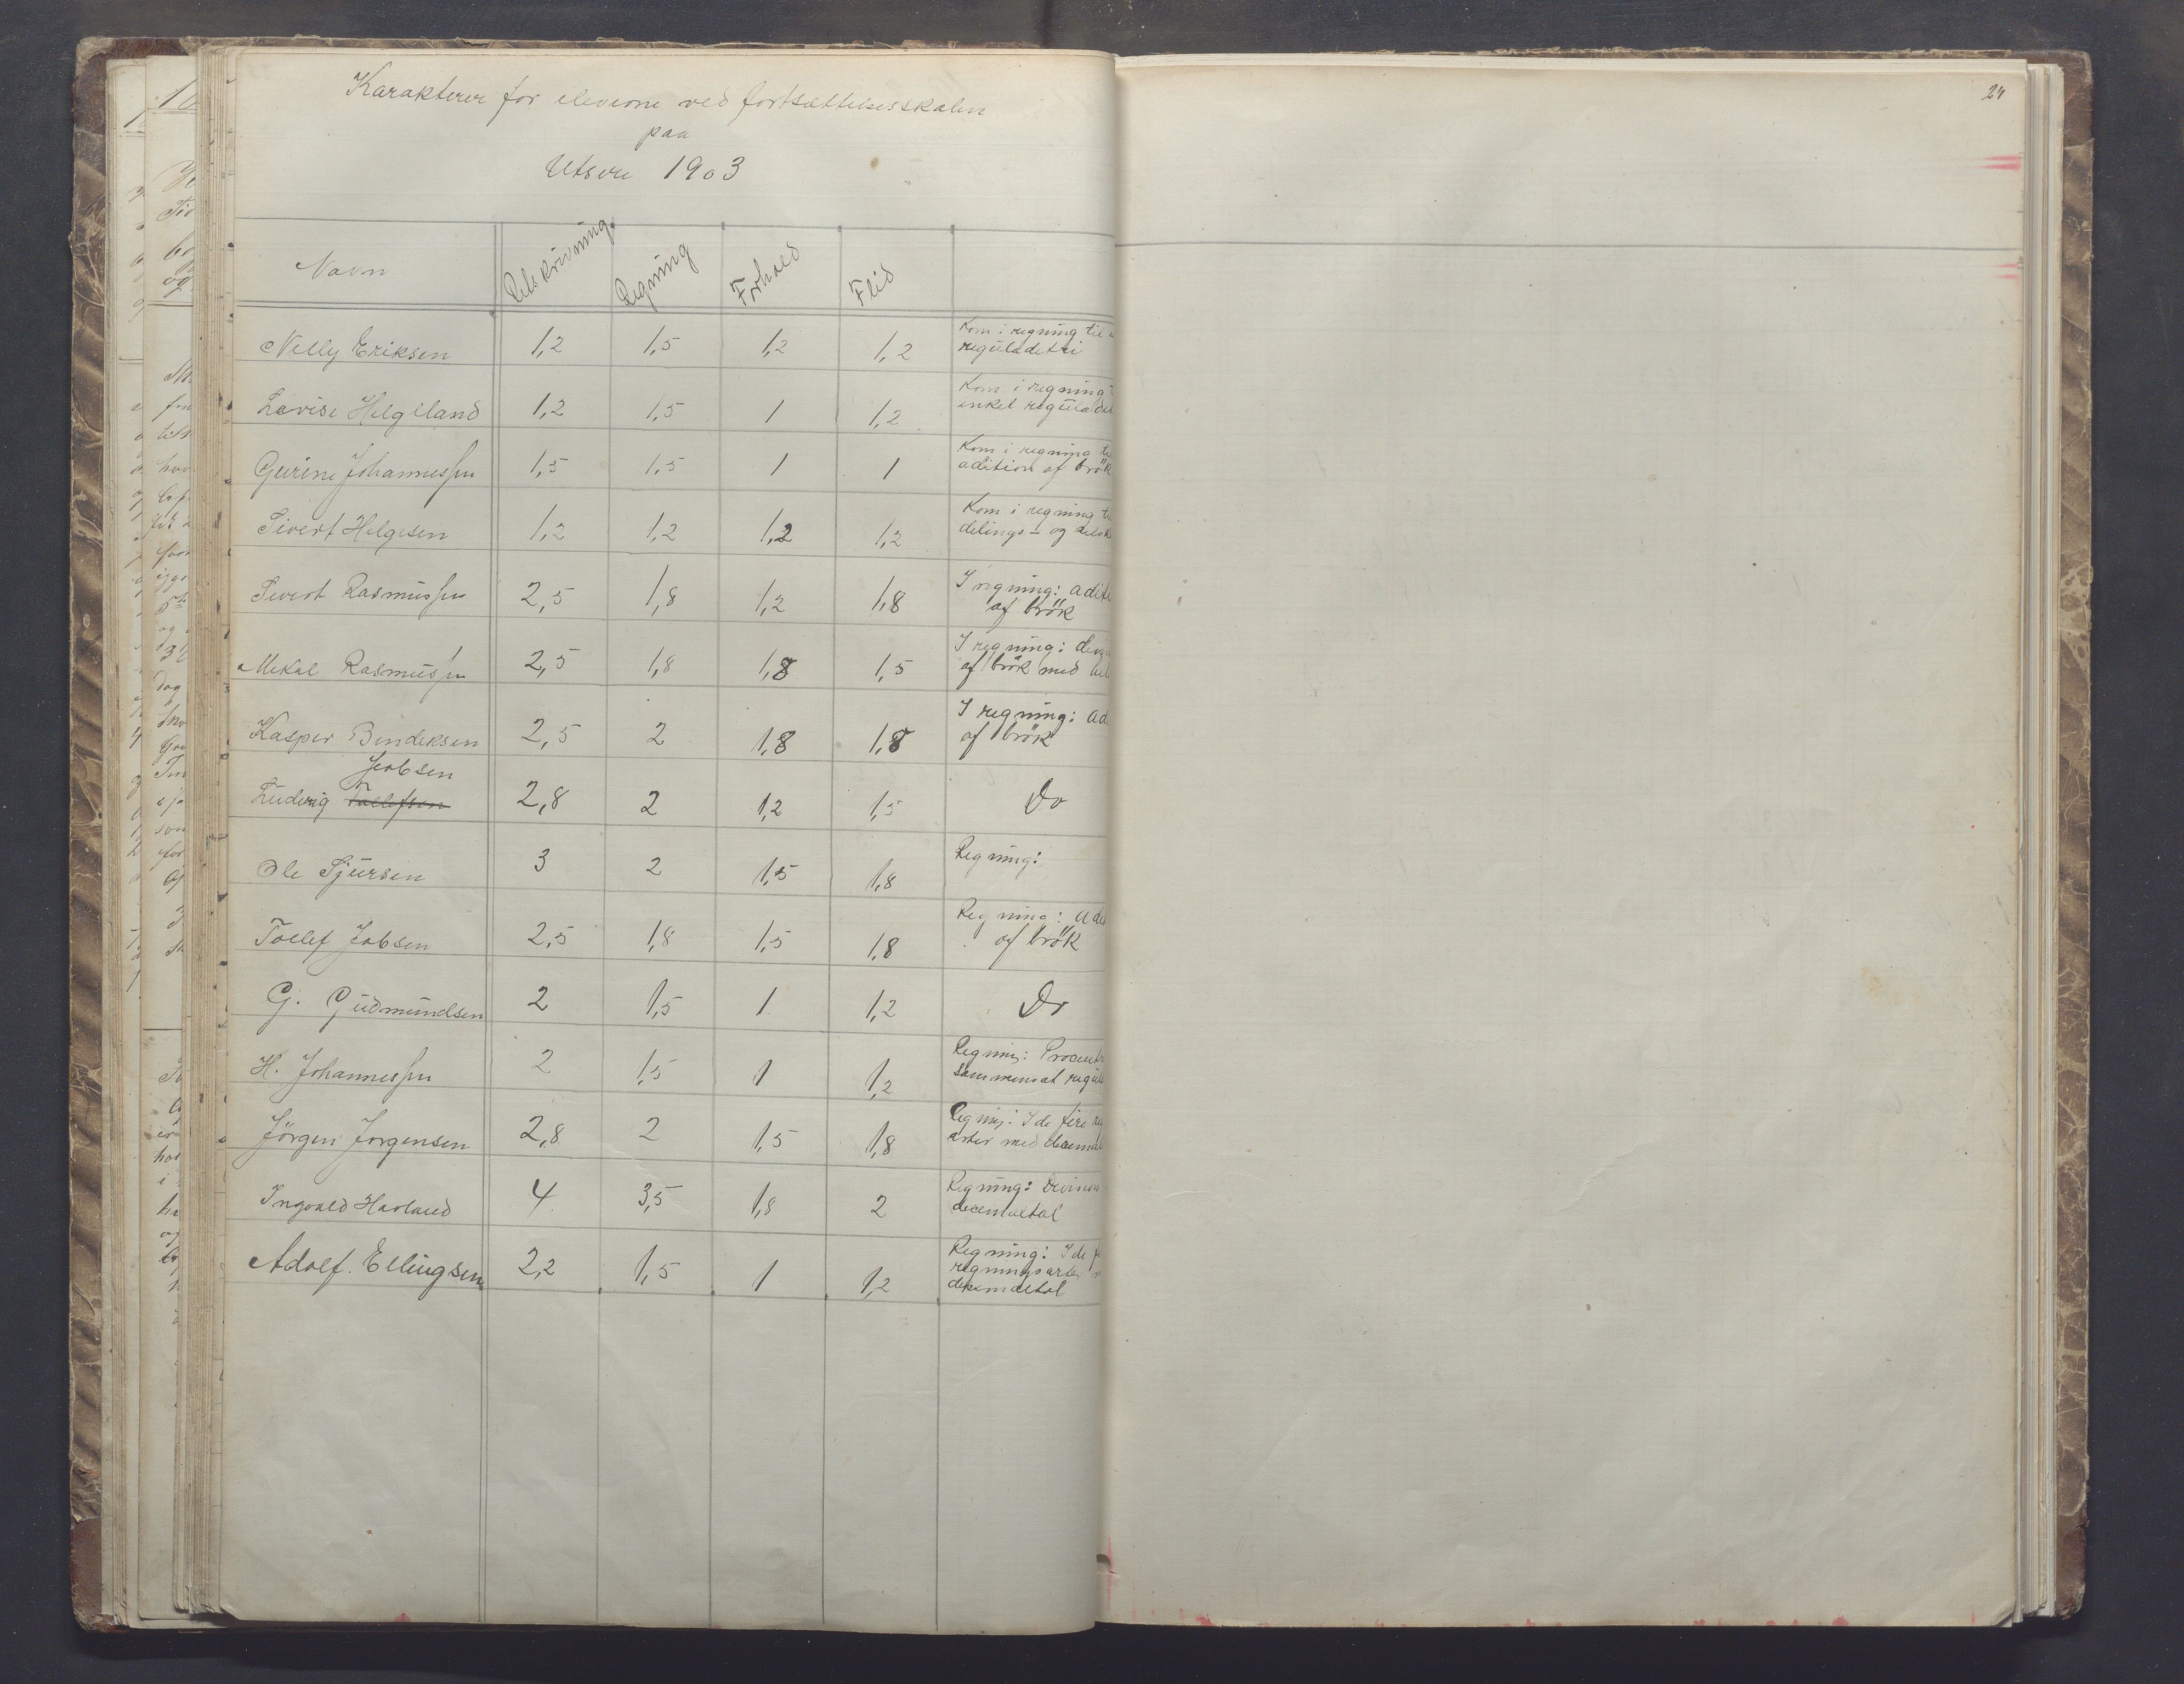 Karakterer for eleverne ved fortsættelsesskolen
paa
Utsire 1903
Navn Retskrivning Regning Forhold Flid
Nelly Eriksen 1,2 1,5 1,2 1,2 Kom i regning til
reguladetri
Lovise Helgeland 1,2 1,5 1 1,2 Kom i regning
enkel regulade
Gurine Johannessen 1,5 1,5 1 1 Kom i regning til
adition af brök
Sivert Helgesen 1,2 1,2 1,2 1,2 Kom i regning
delings- og
Sivert Rasmussen 2,5 1,8 1,2 1,8 I regning: adit
af brök
Mekal Rasmussen 2,5 1,8 1,8 1,5 I regning:
af brök med
Kasper Bendeksen 2,5 2 1,8 1,8 I regning: ad
af brök
Jeobsen
Ludvig Tollefsen 2,8 2 1,2 1,5 Do
Ole Sjursen 3 2 1,5 1,8 Regning:
Tollef Jobsen 2,5 1,8 1,5 1,8 Regning: ad
af brök
G. Gudmundsen 2 1,5 1 1,2 Do
H. Johannessen 2 1,5 1 1,2 Regning: Procent
sammensat regul
Jörgen Jorgensen 2,8 2 1,5 1,8 Regning: I de fire
arter med
Ingvald Havland 4 3,5 1,8 2 Regning:
decimaltal
Adolf. Ellingsen 2,2 1,5 1 1,2 Regning: I de
regningsarter
24